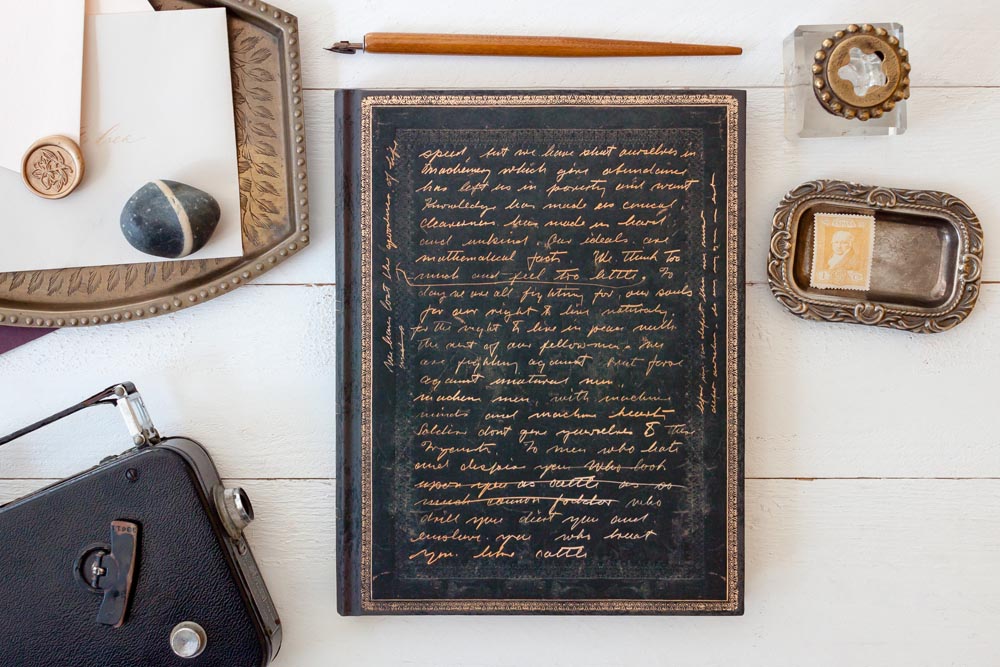 speed, but we have shut ourselves in
machinery which gives abundance
has left us in poverty and want
Knowledge has made us cynical
Cleverness has made us hard
and unkind Our ideals are
mathematical facts. We think too
much and feel too little. To
day we are all fighting for our souls
for our right to live naturally
for the right to live in peace with
the rest of our fellow-men. We
are fighting against brut force
against unatural men.
machine men, with machine
minds and machine hearts
Soldiers dont give yourselves to these
To men who hate
and despise you Who look
upon you as cattle as so
much cannon fodder who
drill you diet you and
enslave you who treat
you like cattle
We have lost the